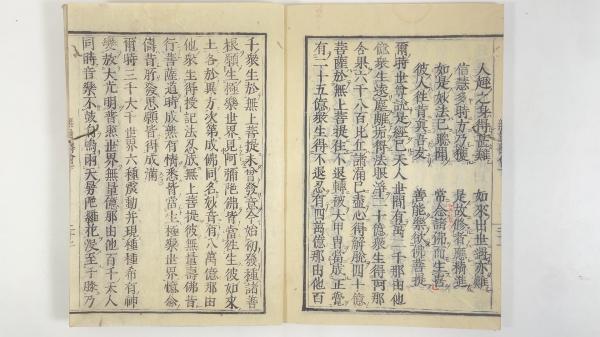 人趣之身得甚難　如來出世遇亦難
信慧多時方乃獲　是故修者應精進
如是妙法已聽聞　常念諸佛而生喜
彼人往昔真吾友　善能樂欲佛菩提
爾時世尊說是經已天人世間有萬二千那由他
億眾生遠塵離垢得法眼淨二十億眾生得阿那
含果六千八百比丘諸漏已盡心得解脫四十億
菩薩於無上菩提住不退轉被大甲冑當成正覺
有二十五億眾生得不退忍有四萬億那由他百
千眾生於無上菩提未曾發意今始初發種諸善
根願生極樂世界見阿彌陀佛皆當往生彼如來
土各於異方次第成佛同名妙音有八萬億那由
他眾生得授記法忍成無上菩提彼無量壽佛昔
行菩薩道時成熟有情悉皆當生極樂世界憶念
儔昔所發思願皆得成滿
爾時三千大千世界六種震動并現種種希有神
變放大光明普照世界無量億那由他百千天人
同時音樂不鼓自鳴雨天曼陀羅花沒至于膝乃